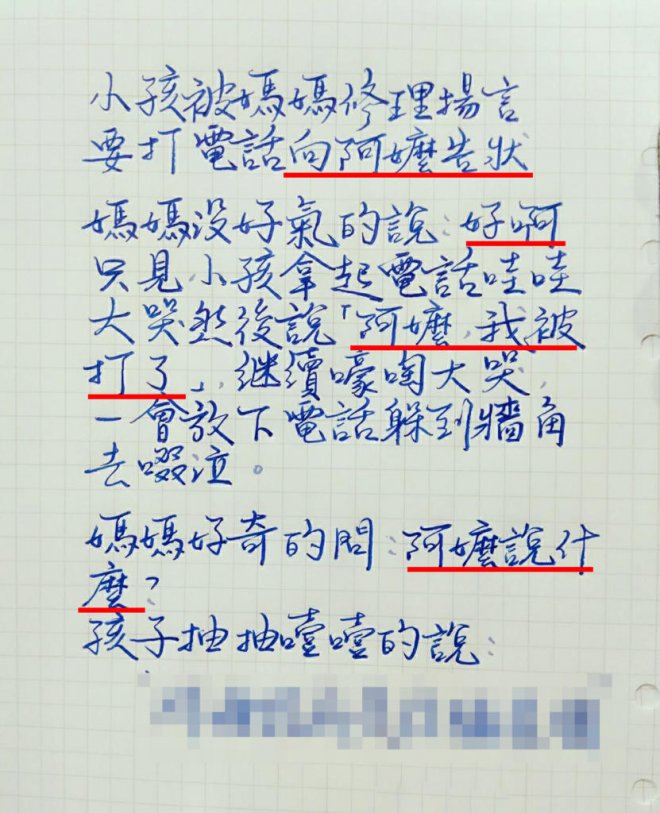 小孩被媽媽修理揚言
要打電話向阿嬤告狀
媽媽没好氣的說:好啊
只見小孩拿起電話哇哇
大哭然後說「阿嬤,我被
打了」,继續嚎啕大哭,
一會放下電話躲到牆角
去啜泣。
媽媽好奇的問:阿嬤說什
麼?
孩子抽抽噎噎的說: